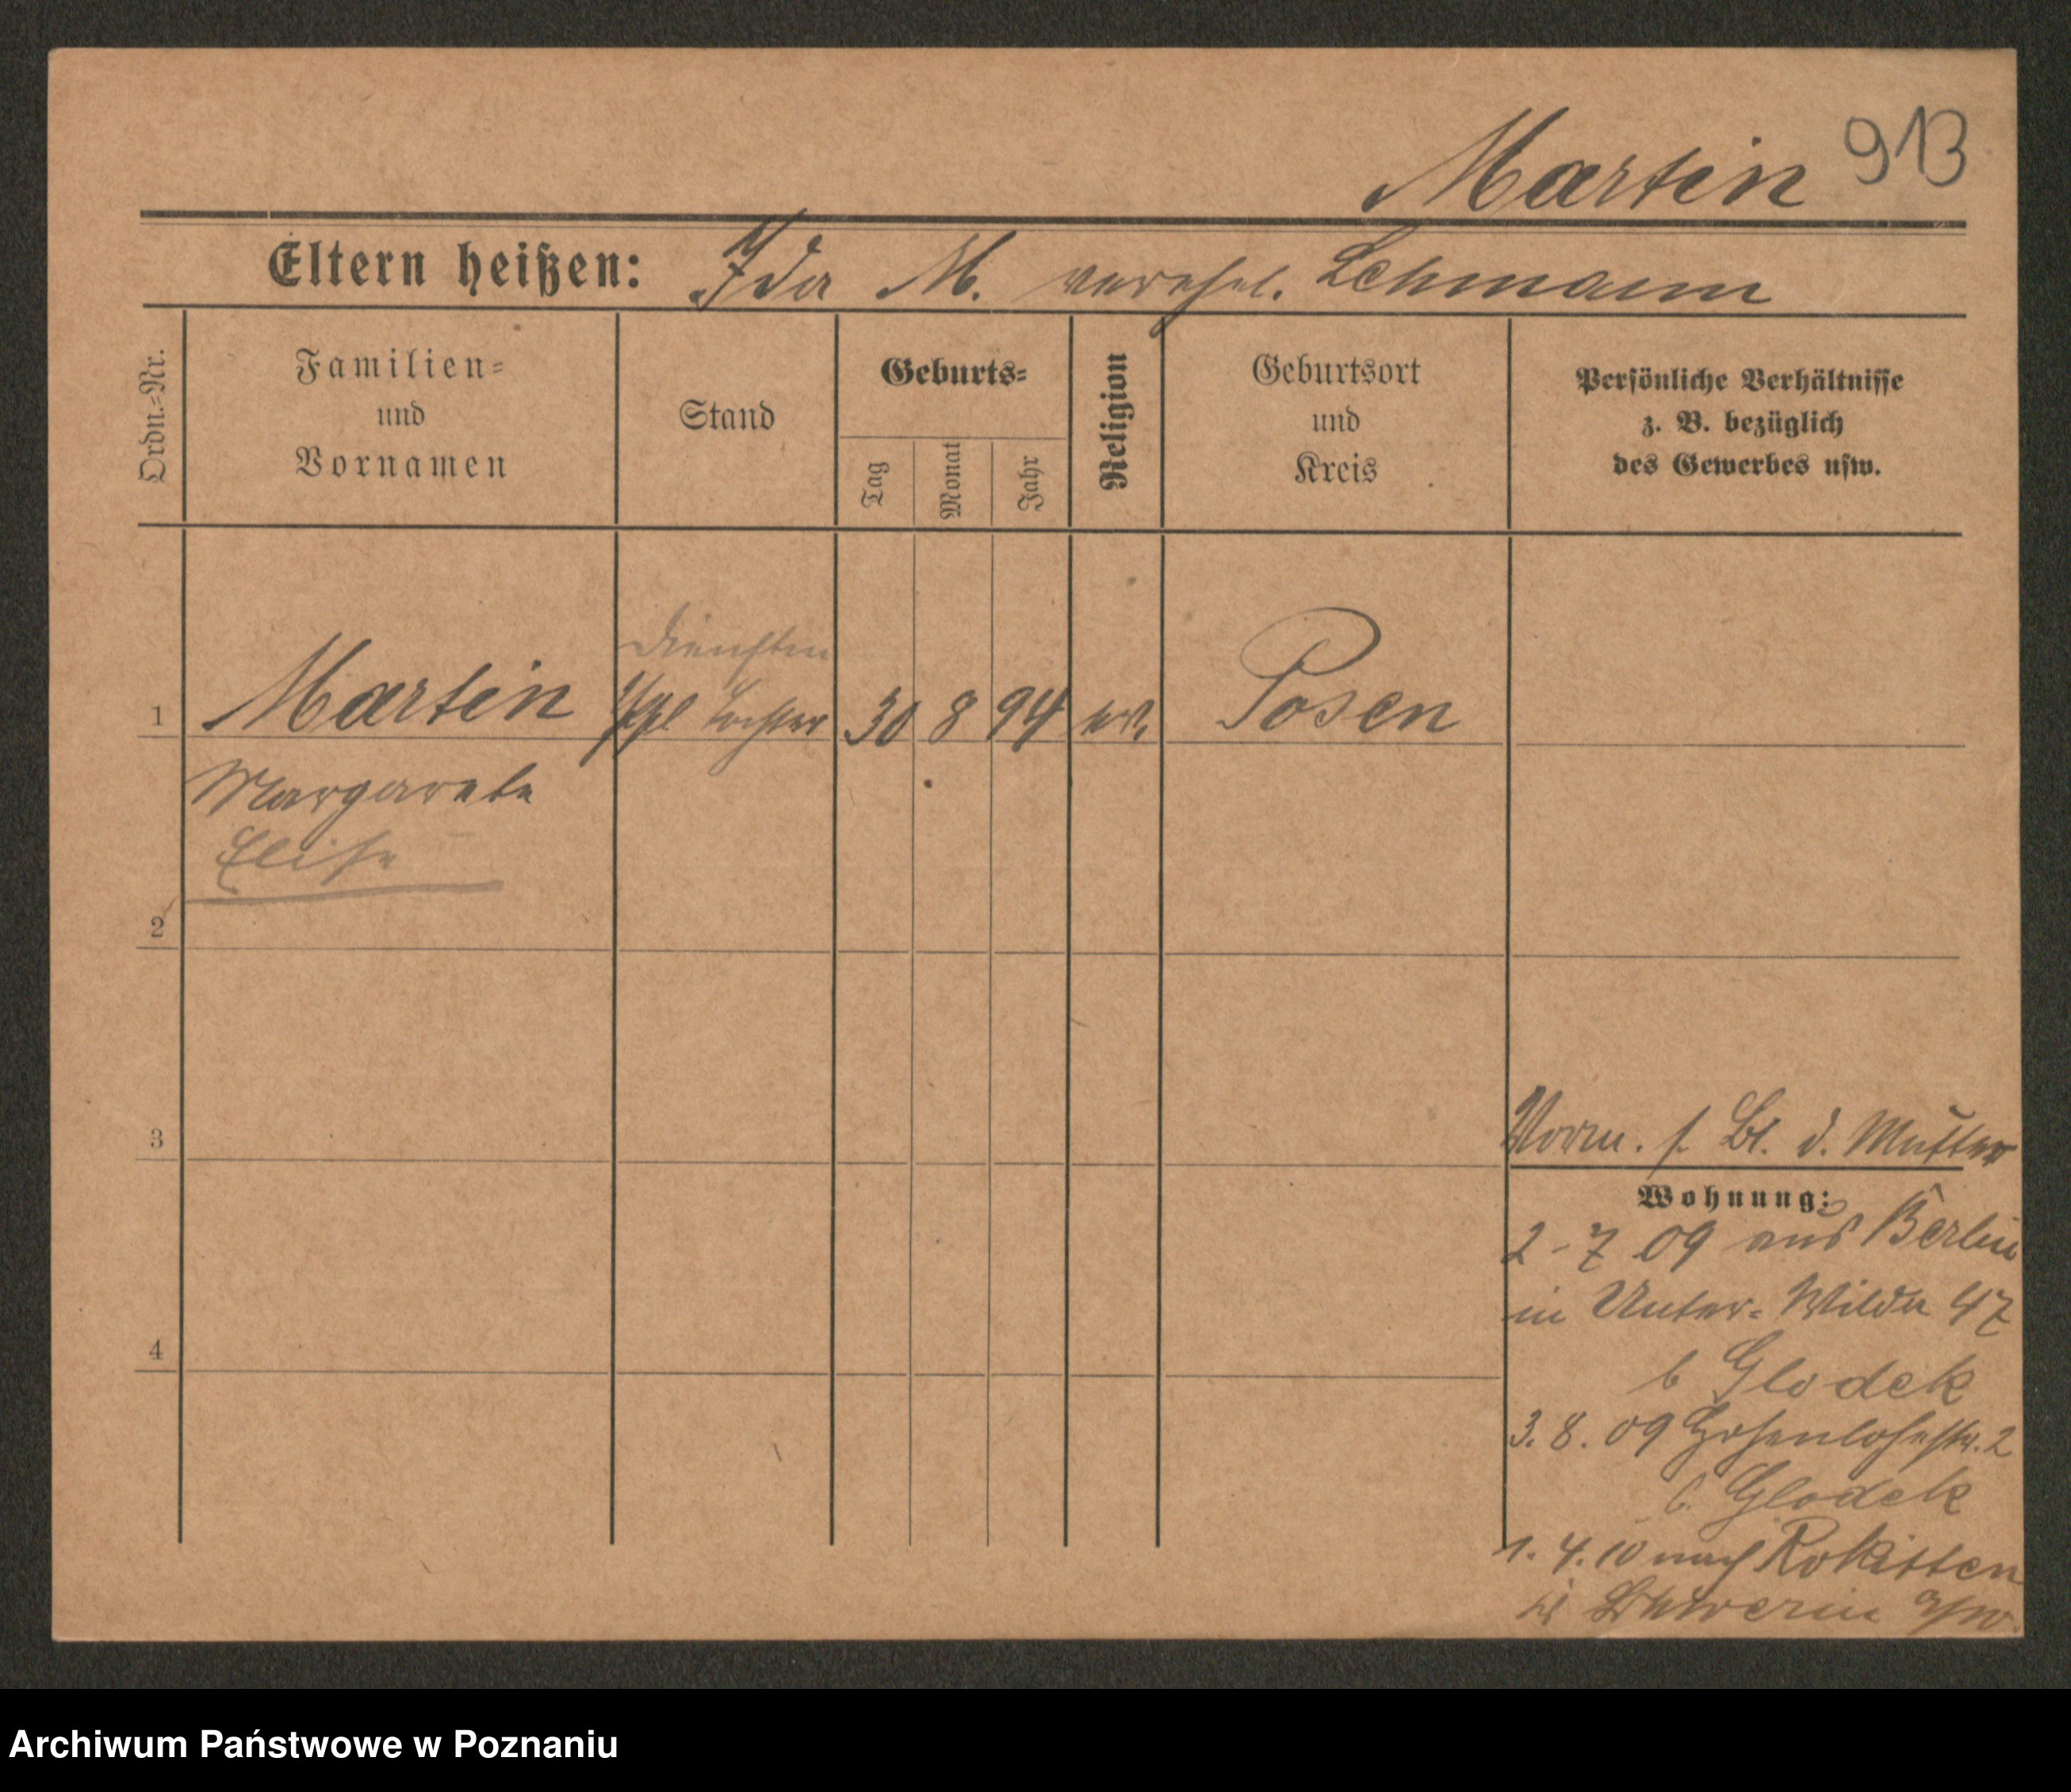 Martin 913
Eltern heißen: Ida M. verehel. Lehmann
Ordn.=Nr.
Familien=
und
Vornamen
Stand
Geburts=
Tag
Monat
Jahr
Religion
Geburtsort
und
Kreis
Persönliche Verhältnisse
z. B. bezüglich
des Gewerbes usw.
1 Martin Tochter 30 8 94 Posen
Margarete
Elise
2
3
4
Vorm. s. Bl. d. Mutter
Wohnung:
2-7 09 aus Berlin
in Unter-Wilda 47
b Glodek
3. 8. 09 Hohenlohestr. 2
b. Glodek
1. 4. 10 nach Rokitten
Schwerin a/W.
Archiwum Państwowe w Poznaniu